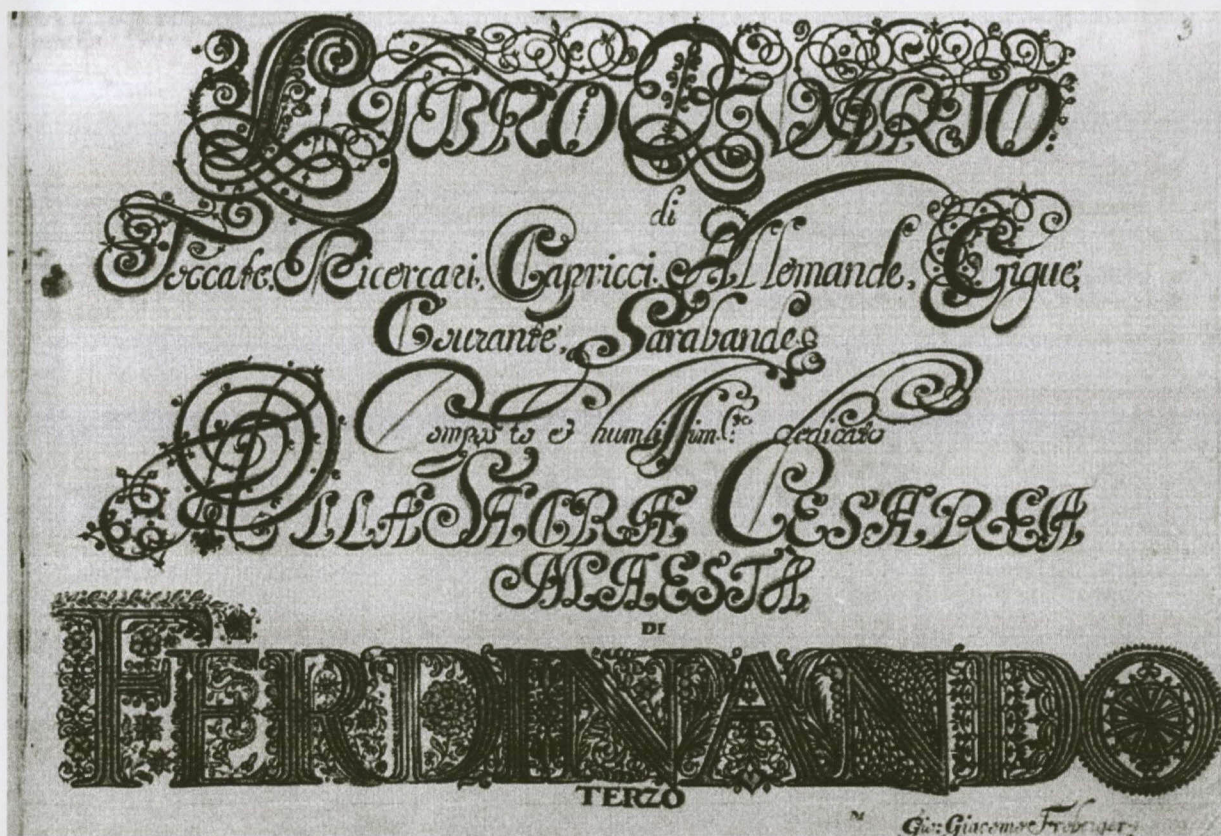 3
LIBRO QVARTO:
di
Toccate, Ricercari, Capricci, Allemande, Gigue,
Courante, Sarabande
Composto et humilissim:te dedicato
ALLA SACRA CESAREA
MAESTÀ
DI
FERDINANDO
TERZO
Gio: Giacomo Froberger